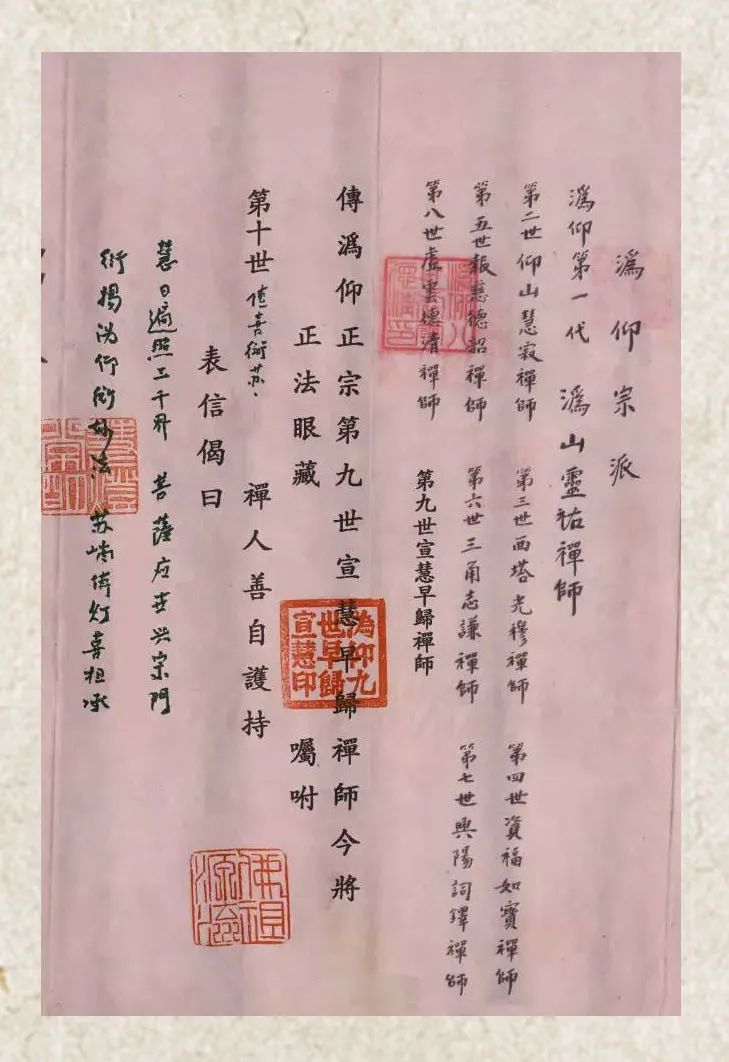 溈仰宗派
溈仰第一代 溈山靈祐禪師
第二世仰山慧寂禪師 第三世西塔光穆禪師 第四世資福如寶禪師
第五世報慈德韶禪師 第六世三角志謙禪師 第七世興陽詞鐸禪師
第八世虛雲德清禪師 第九世宣慧早歸禪師
傳溈仰正宗第九世宣慧早歸禪師今將
正法眼藏 囑咐
第十世 衍苏 禪人善自護持
表信偈曰
慧日遍照三千界 菩薩应世兴宗門
衍揚沩仰 妙法 苏 传灯喜担承
溈仰九世早歸宣慧印
佛祖源流